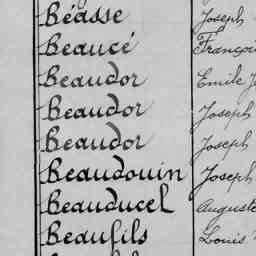 Béasse Joseph
Beaucé Françoi
Beaudor Emile J
Beaudor Joseph
Beaudor Joseph
Beaudouin Joseph
Beauducel Auguste
Beaufils Louis